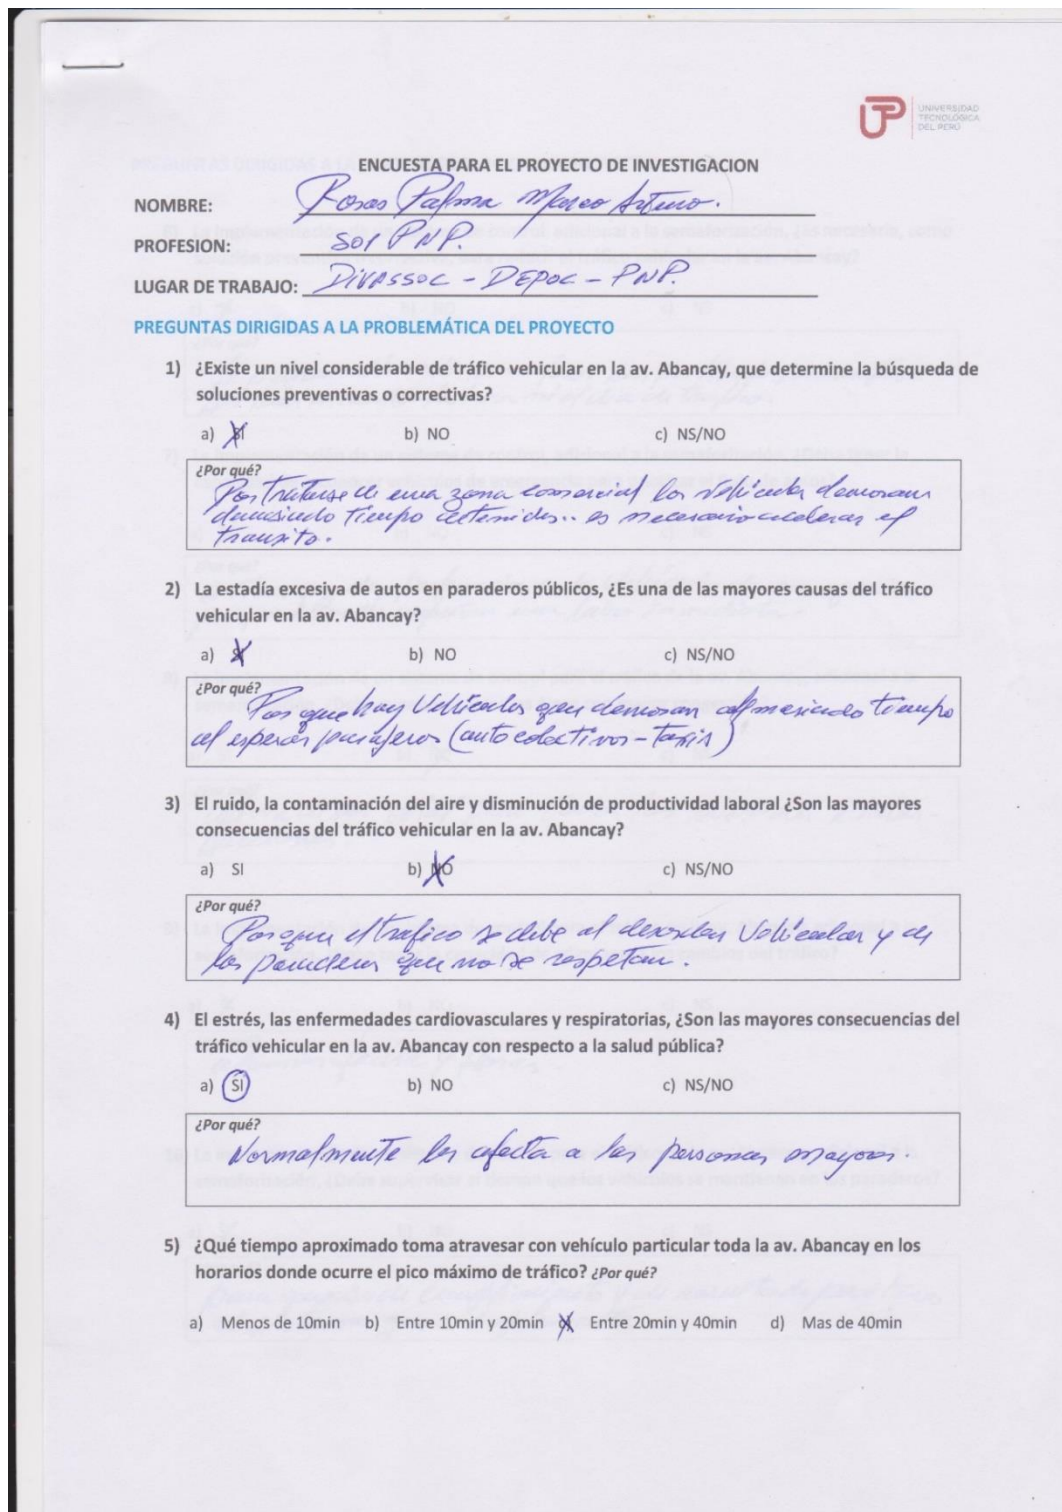 UTP UNIVERSIDAD
TECNOLÓGICA
DEL PERÚ
ENCUESTA PARA EL PROYECTO DE INVESTIGACION
NOMBRE: Rosas Palma Marco Arturo.
PROFESION: SO1 PNP.
LUGAR DE TRABAJO: DIVASSOC - DEPOC - PNP.
PREGUNTAS DIRIGIDAS A LA PROBLEMÁTICA DEL PROYECTO
1) ¿Existe un nivel considerable de tráfico vehicular en la av. Abancay, que determine la búsqueda de
soluciones preventivas o correctivas?
a) SI b) NO c) NS/NO
¿Por qué?
Por tratarse de una zona comercial los vehículos demoran
demasiado tiempo detenidos.. es necesario acelerar el
transito.
2) La estadía excesiva de autos en paraderos públicos, ¿Es una de las mayores causas del tráfico
vehicular en la av. Abancay?
a) SI b) NO c) NS/NO
¿Por qué?
Por que hay Vehículos que demoran demasiado tiempo
al esperar pasajeros (auto colectivos - taxis)
3) El ruido, la contaminación del aire y disminución de productividad laboral ¿Son las mayores
consecuencias del tráfico vehicular en la av. Abancay?
a) SI b) NO c) NS/NO
¿Por qué?
Porque el trafico se debe al desorden Vehicular y de
los paraderos que no se respetan.
4) El estrés, las enfermedades cardiovasculares y respiratorias, ¿Son las mayores consecuencias del
tráfico vehicular en la av. Abancay con respecto a la salud pública?
a) SI b) NO c) NS/NO
¿Por qué?
Normalmente les afecta a las personas mayores.
5) ¿Qué tiempo aproximado toma atravesar con vehículo particular toda la av. Abancay en los
horarios donde ocurre el pico máximo de tráfico? ¿Por qué?
a) Menos de 10min b) Entre 10min y 20min c) Entre 20min y 40min d) Mas de 40min